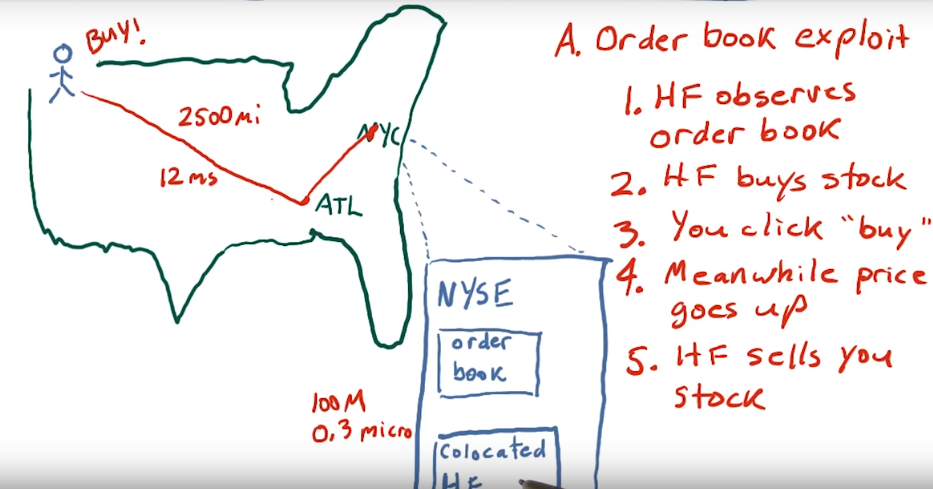 BUY!
2500 mi
12 ms
NYC
ATL
NYSE
order
book
100 M
0,3 micro
Colocated
HF
A. Order book exploit
1. HF observes
order book
2. HF buys stock
3. You click "buy"
4. Meanwhile price
goes up
5. HF sells you
stock